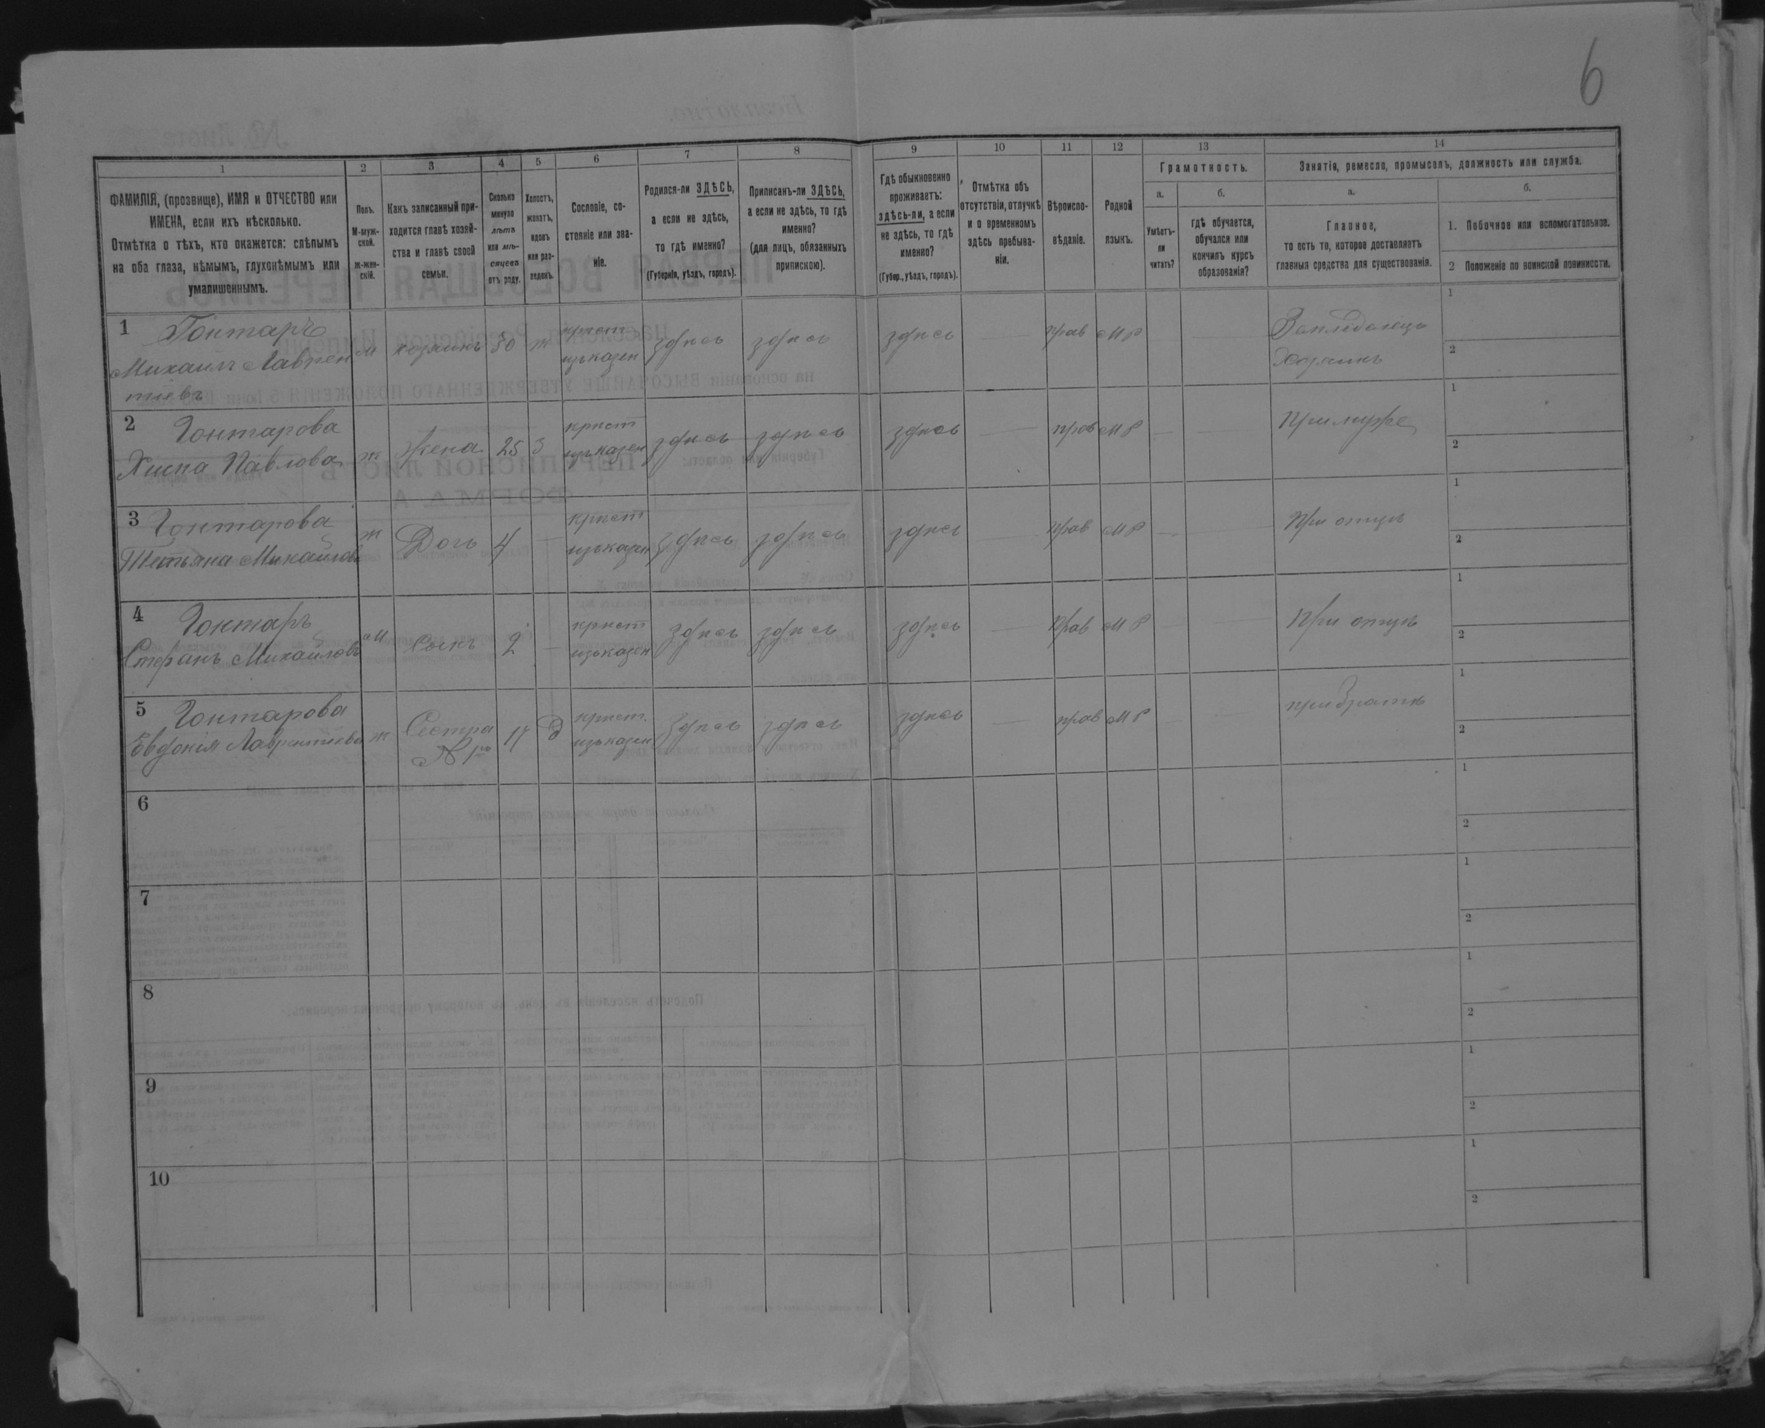 6
1
2
3
4
5
6
7
8
9
10
11
12
13
14
ФАМИЛІЯ, (прозвище), ИМЯ и ОТЧЕСТВО или
ИМЕНА, если ихъ нѣсколько.
Отмѣтка о тѣхъ, кто окажется: слѣпымъ
на оба глаза, нѣмымъ, глухонѣмымъ или
умалишеннымъ.
Полъ.
М-муж-
ской.
ж-жен-
скій.
Какъ записанный при-
ходится главѣ хозяй-
ства и главѣ своей
семьи.
Сколько
минуло
лѣтъ
или мѣ-
сяцевъ
отъ роду.
Холостъ,
женатъ,
вдовъ
или раз-
веденъ.
Сословіе, со-
стояніе или зва-
ніе.
Родился-ли ЗДѢСЬ,
а если не здѣсь,
то гдѣ именно?
(Губернія, уѣздъ, городъ).
Приписанъ-ли ЗДѢСЬ,
а если не здѣсь, то гдѣ
именно?
(для лицъ, обязанныхъ
припискою).
Гдѣ обыкновенно
проживаетъ:
здѣсь-ли, а если
не здѣсь, то гдѣ
именно?
(Губер., уѣздъ, городъ).
Отмѣтка объ
отсутствіи, отлучкѣ
и о временномъ
здѣсь пребыва-
ніи.
Вѣроиспо-
вѣданіе.
Родной
языкъ.
Грамотность.
а.
б.
Умѣетъ-
ли
читать?
гдѣ обучается,
обучался или
кончилъ курсъ
образованія?
Занятія, ремесло, промыселъ, должность или служба.
а.
б.
Главное,
то есть то, которое доставляетъ
главныя средства для существованія.
1. Побочное или вспомогательное.
2 Положеніе по воинской повинности.
1 Гонтарь
Михаилъ Лаврен
тіевъ
м
хозяинъ
30
ж
крест
изъ казен
здѣсь
здѣсь
здѣсь
прав
МР
Земледѣлецъ
Хозяинъ
1
2
2 Гонтарова
Павлова
ж
Жена
25
З
крест
изъ казен
здѣсь
здѣсь
здѣсь
прав
МР
При мужѣ
1
2
3 Гонтарова
Татьяна Михаилова
ж
Дочь
4
крест
изъ казен
здѣсь
здѣсь
здѣсь
прав
МР
При отцѣ
1
2
4 Гонтарь
Стефанъ Михаиловъ
М
Сынъ
2
крест
изъ казен
здѣсь
здѣсь
здѣсь
прав
МР
При отцѣ
1
2
5 Гонтарова
Евдокія Лаврентіева
ж
Сестра
№ 1го
17
Д
крест.
изъ казен
здѣсь
здѣсь
здѣсь
прав
МР
при братѣ
1
2
6
1
2
7
1
2
8
1
2
9
1
2
10
1
2